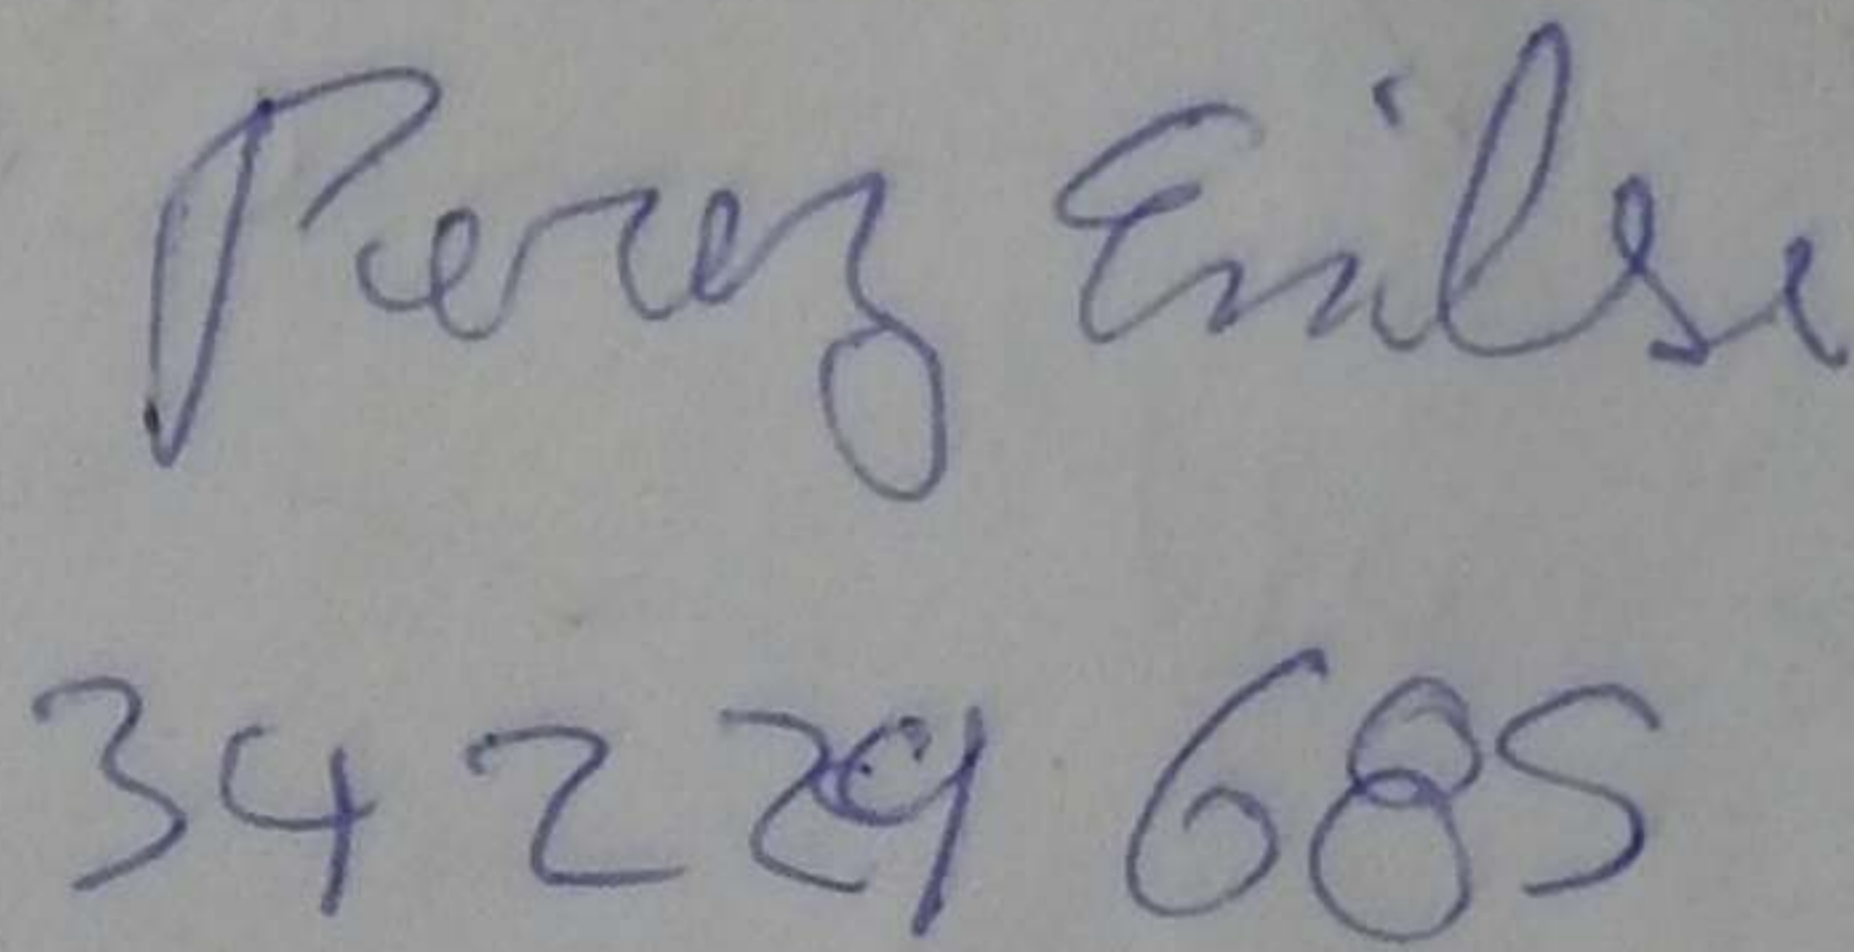 Perez Emilse
34 229 685